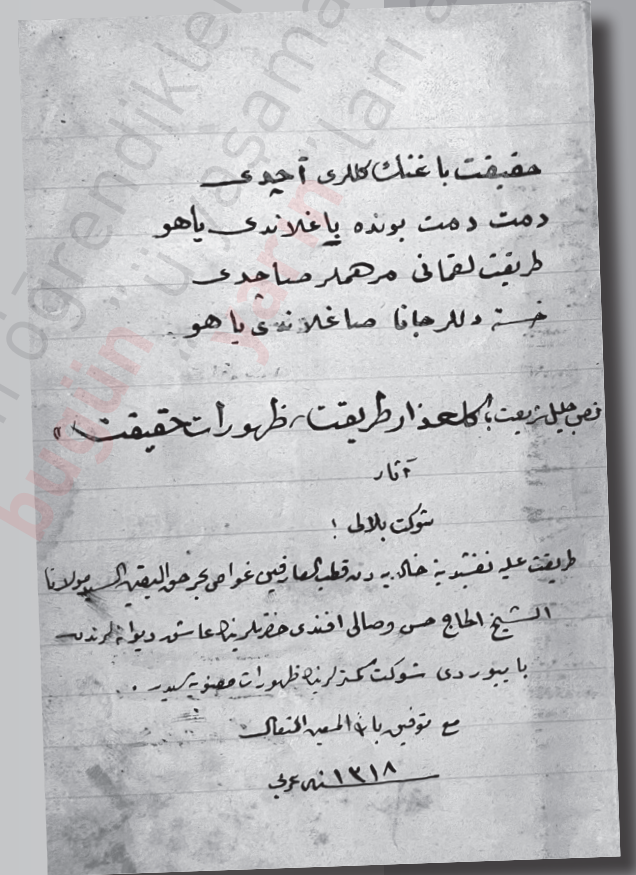 حقیقت باغنك كللری آچدی
دمت دمت بونده یاغلاندی یاهو
طریقت لقمانی مرهملر صاچدی
خسته دللر جانا صاغلاندی یاهو
شریعت، كلعذار طریقت، ظهورات حقیقت
آثار
شوكت بلالی :
طریقت علیه نقشبندیه خالدیه دن قطب العارفین غواص بحر حق الیقین السید مولانا
الشیخ الحاج حسن وصالی افندی حضرتلرینك عاشق دیوانه لرندن
بایبوردی شوكت كمترلرینك ظهورات معنویه سیدر ..
مع توفیق بالله المعین المتعال
١٣١٨ سنه عربی
öğrendikler
ü yaşama
ları
bugün yarın